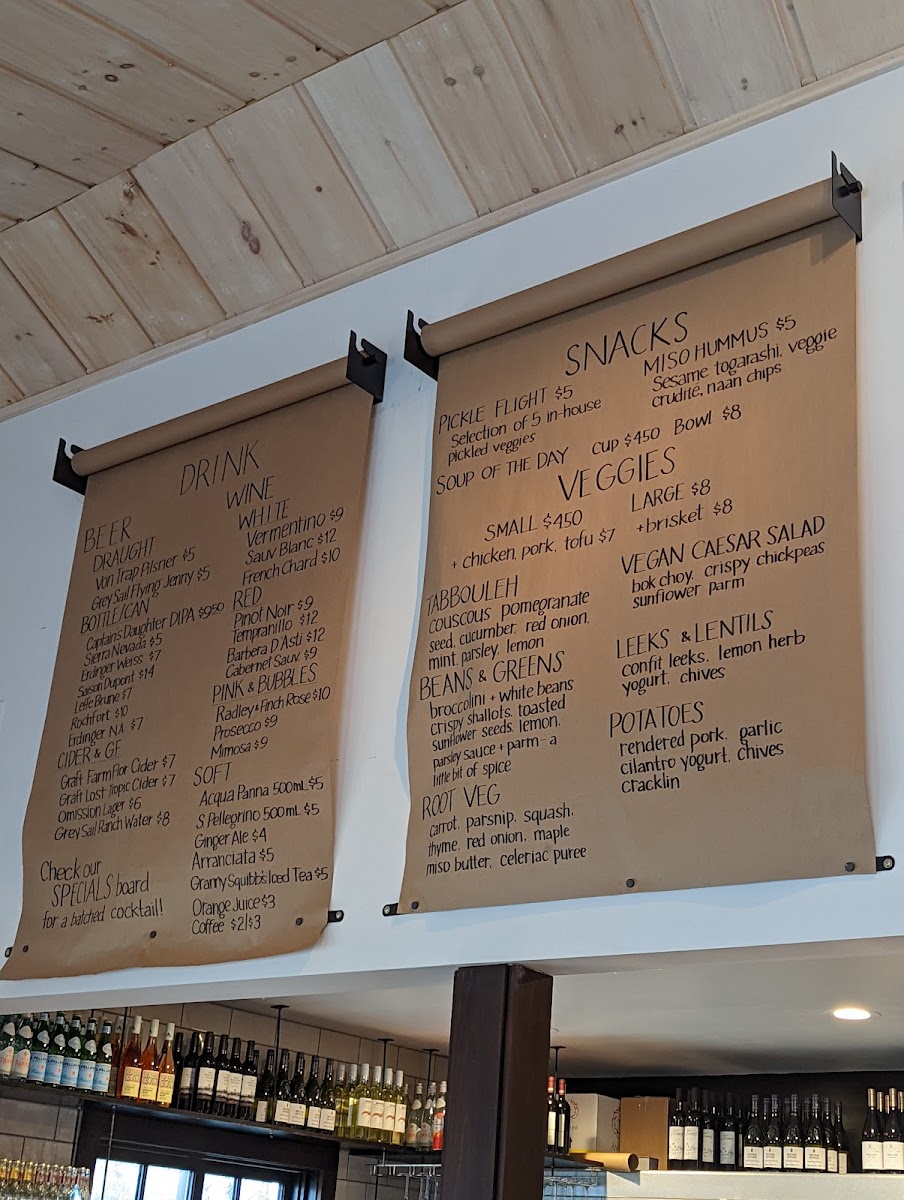 DRINK
BEER
DRAUGHT
Von Trap Pilsner $5
Grey Sail Flying Jenny $5
BOTTLE/CAN
Captain's Daughter DIPA $950
Sierra Nevada $5
Erdinger Weiss $7
Saison Dupont $14
Leffe Brune $7
Rochfort $10
Erdinger N.A. $7
CIDER & GF
Graft Farm Flor Cider $7
Graft Lost Tropic Cider $7
Omission Lager $6
Grey Sail Ranch Water $8
Check our
SPECIALS board
for a batched cocktail!
WINE
WHITE
Vermentino $9
Sauv Blanc $12
French Chard $10
RED
Pinot Noir $9
Tempranillo $12
Barbera D'Asti $12
Cabernet Sauv. $9
PINK & BUBBLES
Radley & Finch Rose $10
Prosecco $9
Mimosa $9
SOFT
Acqua Panna 500mL $5
S. Pellegrino 500mL $5
Ginger Ale $4
Arranciata $5
Granny Squibb's Iced Tea $5
Orange Juice $3
Coffee $2|$3
SNACKS
PICKLE FLIGHT $5
Selection of 5 in-house
pickled veggies
MISO HUMMUS $5
Sesame togarashi, veggie
crudite, naan chips
SOUP OF THE DAY Cup $450 Bowl $8
VEGGIES
SMALL $450 LARGE $8
+ chicken, pork, tofu $7 +brisket $8
TABBOULEH
couscous pomegranate
seed, cucumber, red onion,
mint, parsley, lemon
BEANS & GREENS
broccolini + white beans
crispy shallots, toasted
sunflower seeds, lemon,
parsley sauce + parm - a
little bit of spice
ROOT VEG
carrot, parsnip, squash,
thyme, red onion, maple
miso butter, celeriac puree
VEGAN CAESAR SALAD
bok choy, crispy chickpeas
sunflower parm
LEEKS & LENTILS
confit leeks, lemon herb
yogurt, chives
POTATOES
rendered pork, garlic
cilantro yogurt, chives
cracklin